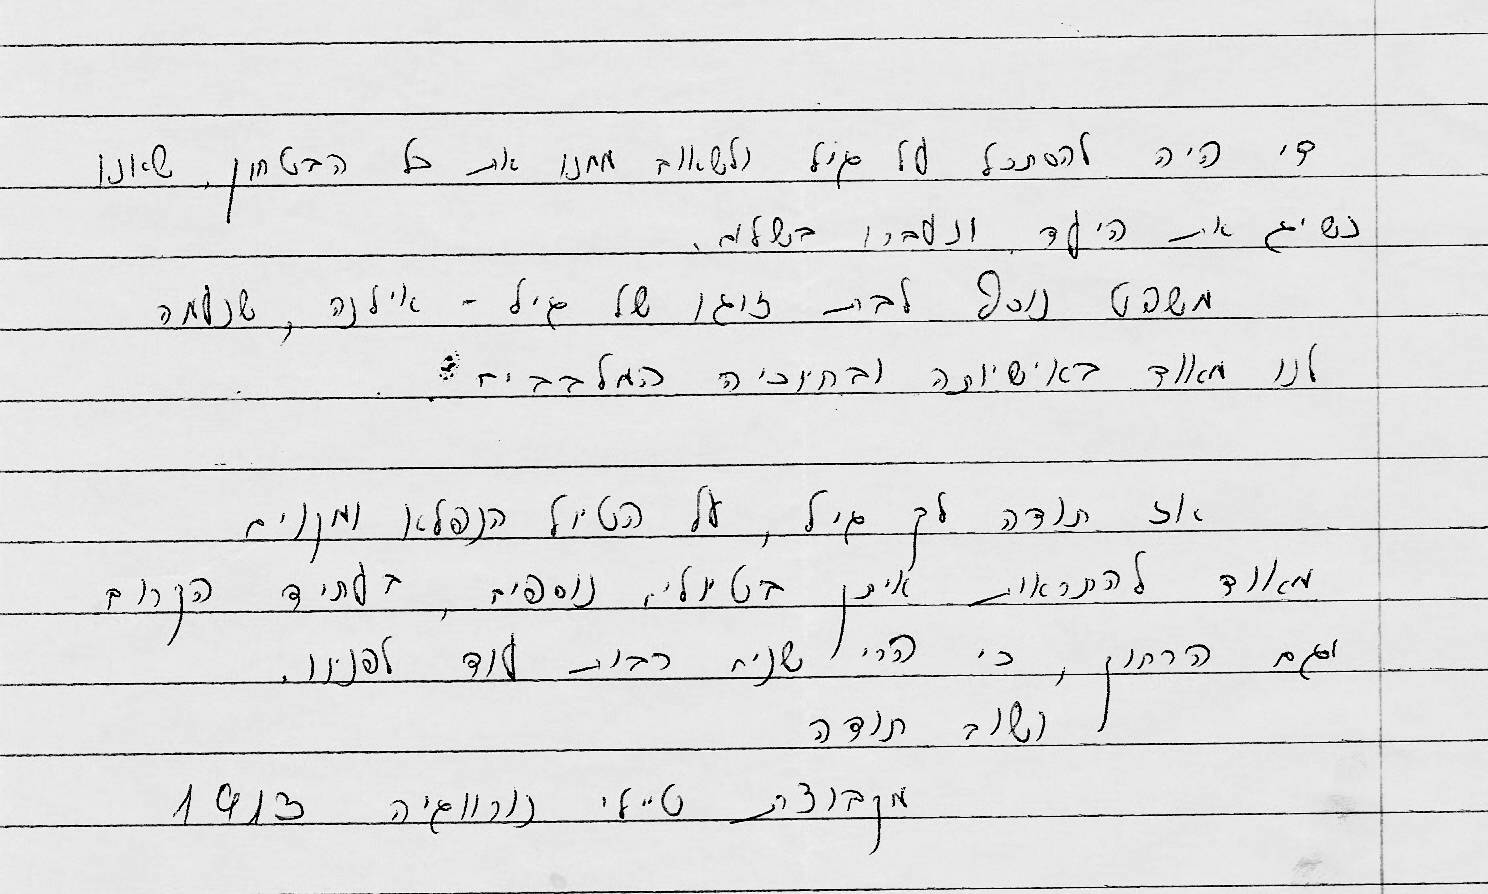 די היה להסתכל על גיל ולשאוב ממנו את כל הבטחון, שאנו
נשיג את היעד ונעברו בשלום.
משפט נוסף לבת זוגו של גיל - אילנה, שנעמה
לנו מאוד באישיותה ובחיוכיה המלבבים.
אז תודה לך גיל, על הטיול הנפלא ומקוים
מאוד להתראות איתך בטיולים נוספים, בעתיד הקרוב
וגם הרחוק, כי הרי שנים רבות עוד לפנינו.
ושוב תודה
מקבוצת טיילי נורווגיה